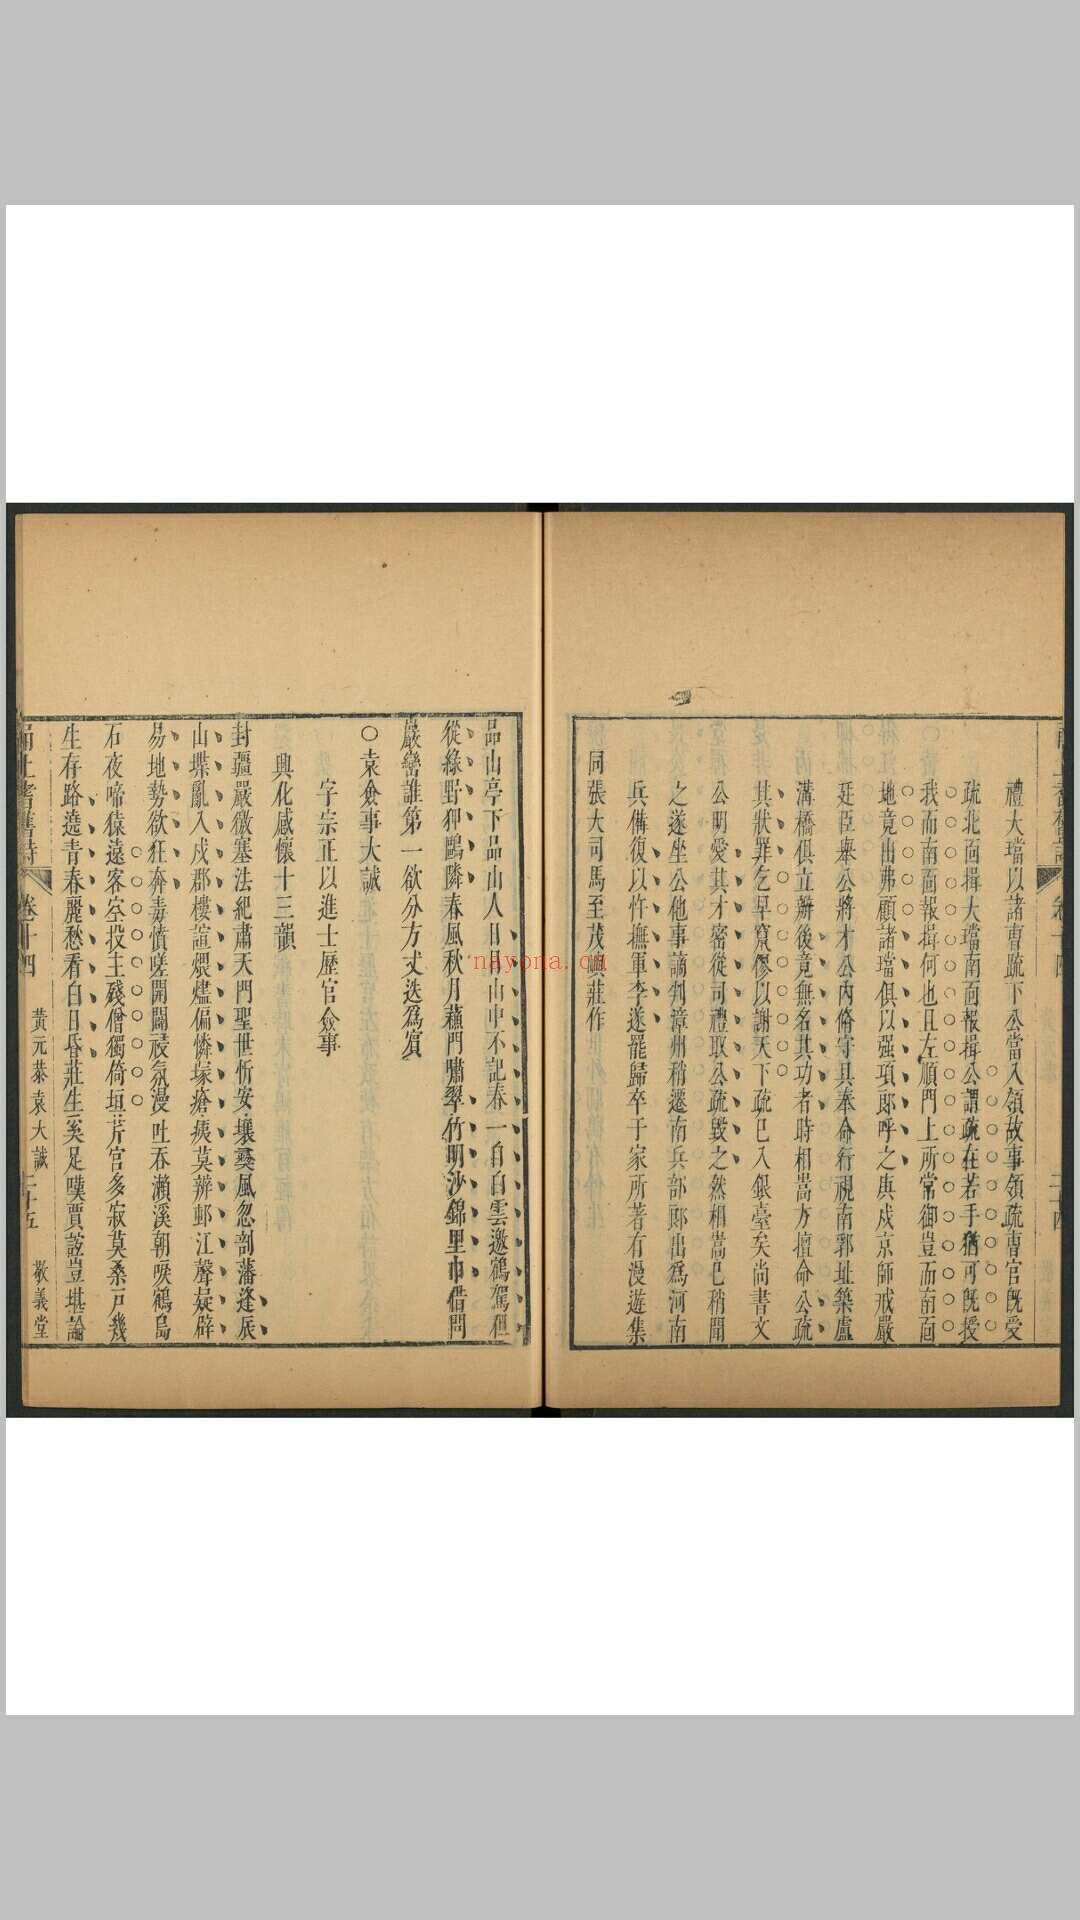 禮大璫以諸曹疏下公當入領故事領疏曹官旣受
疏北面揖大璫南面報揖公謂疏在若手猶可旣授
我而南面報揖何也且左順門上所常御豈而南面
地竟出弗顧諸璫俱以强項郎呼之庚戌京師戒嚴
廷臣舉公將才公內脩守具奉命行視南郭址築廬
溝橋俱立辦後竟無名其功者時相嵩方擅命公疏
其狀罪乞早竄僇以謝天下疏已入銀臺矣尚書文
公明愛其才密從司禮取公疏毀之然相嵩已稍聞
之遂坐公他事謫判漳州稍遷南兵部郎出爲河南
兵備復以忤撫軍李遂罷歸卒于家所著有漫遊集
同張大司馬至茂嶼莊作
品山亭下品山人日日山中不記春一自白雲邀鶴駕
從綠野狎鷗隣春風秋月蘇門嘯翠竹明沙錦里巾借問
巖巒誰第一欲分方丈迭爲賔
○袁僉事大誠
字宗正以進士歷官僉事
興化感懷十三韻
封疆嚴徼塞法紀肅天門聖世忻安壤㬥風忽剖藩逢辰
山堞亂入戍郡樓諠煨燼偏憐塚瘡痍莫辨邨江聲疑辟
易地勢欲狂奔毒憤嗟開闢祲氛漫吐吞瀨溪朝唳鶴烏
石夜啼猿遠客空投主殘僧獨倚垣芹宮多寂莫桑戸幾
生存路遶青春麗愁看白日昏莊生奚足嘆賈誼豈堪論
甬上耆舊詩 卷十四 黃元恭袁大誠 二十五 敬義堂